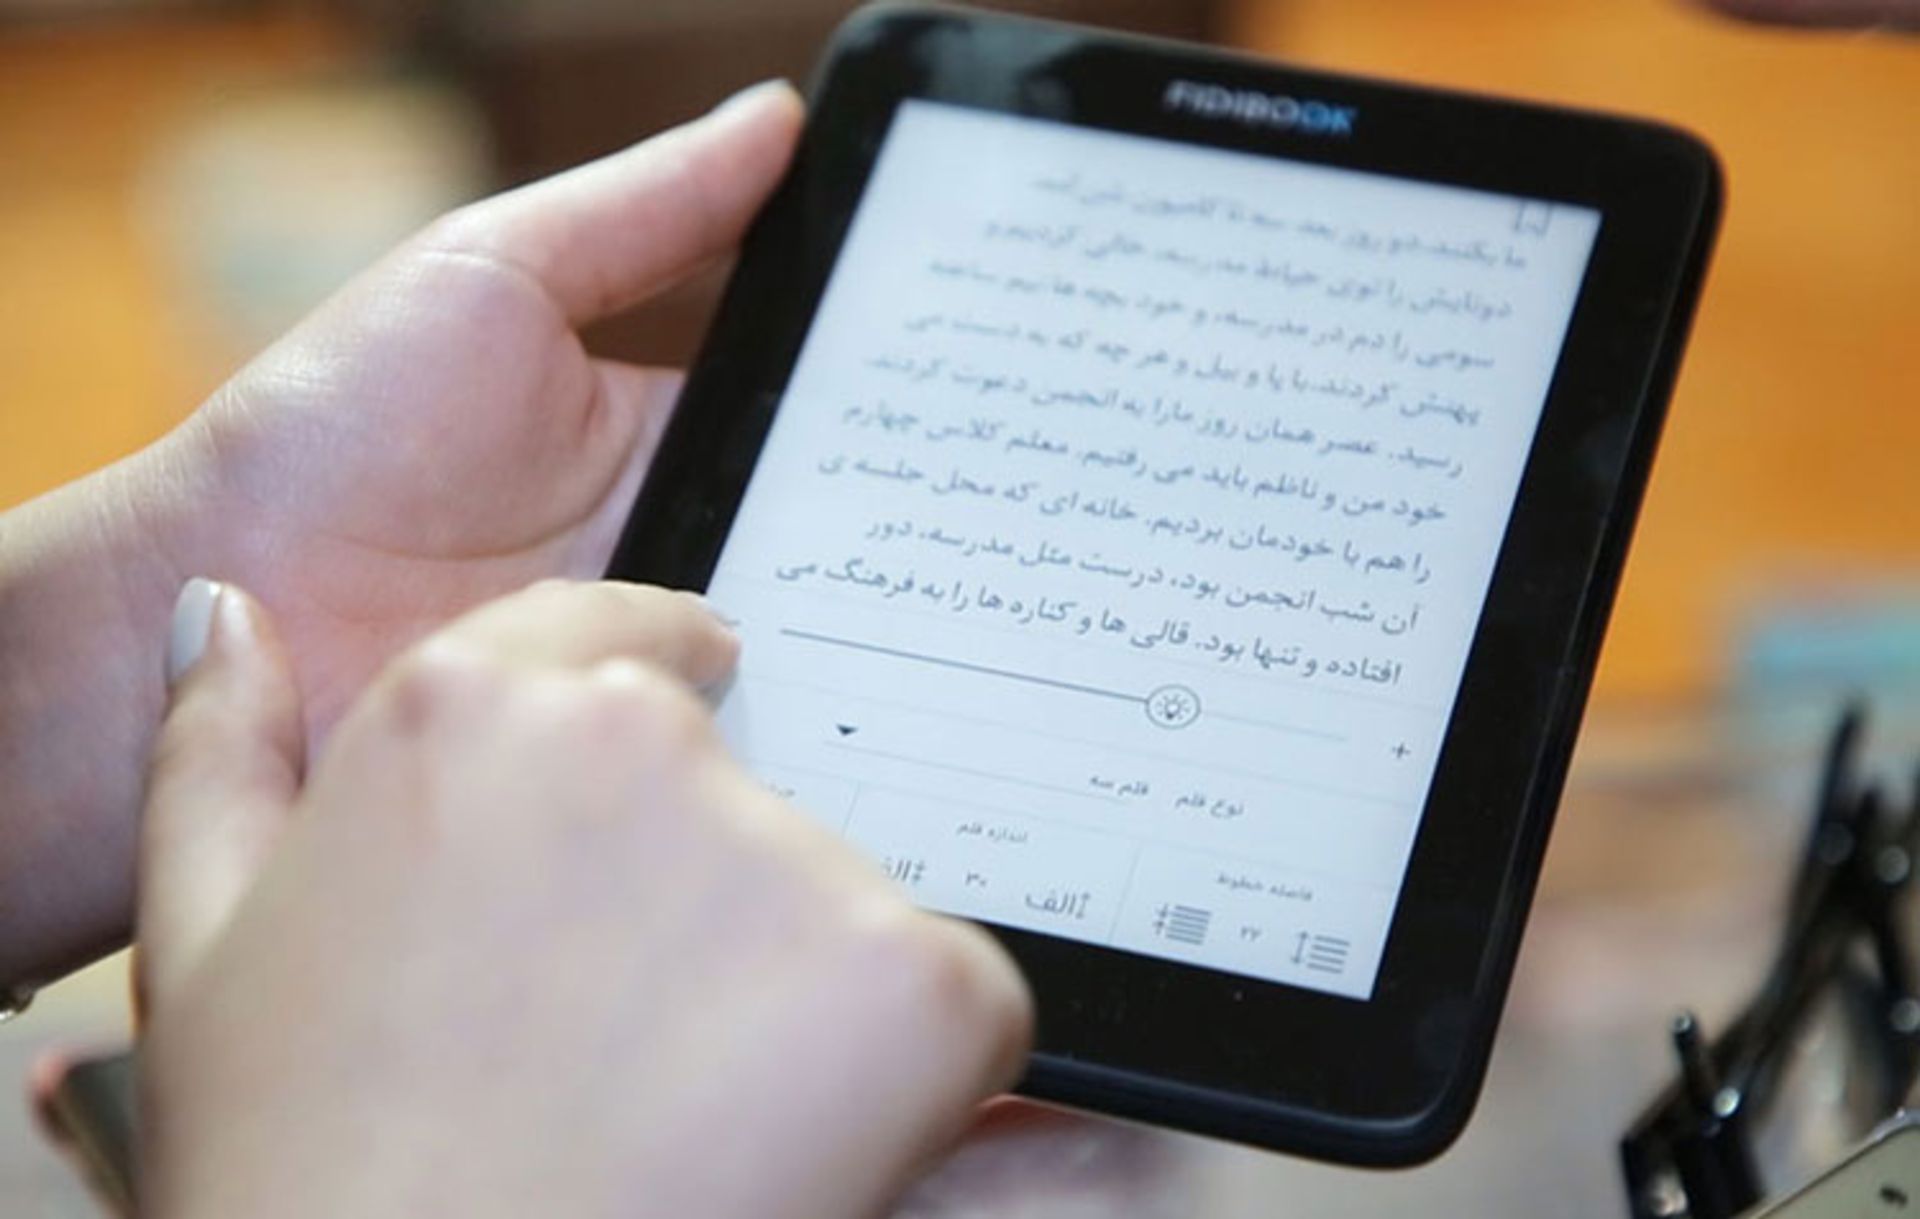 FIDIBOOK
ما بکنند. دو روز بعد سه تا کامیون شن آمد.
دوتایش را توی حیاط مدرسه، خالی کردیم و
سومی را دم در مدرسه، و خود بچه ها نیم ساعته
پهنش کردند. با پا و بیل و هر چه که به دست می
رسید. عصر همان روز ما را به انجمن دعوت کردند.
خود من و ناظم باید می رفتیم. معلم کلاس چهارم
را هم با خودمان بردیم. خانه ای که محل جلسه ی
آن شب انجمن بود، درست مثل مدرسه، دور
افتاده و تنها بود. قالی ها و کناره ها را به فرهنگ می
+
نوع قلم قلم سه
فاصله خطوط اندازه قلم
۲۲ الف ۳۰